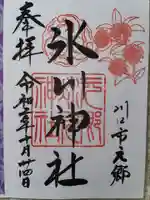 川口市元郷
氷川神社
奉拝
令和二年十月廿四日